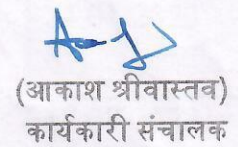 (आकाश श्रीवास्तव)
कार्यकारी संचालक